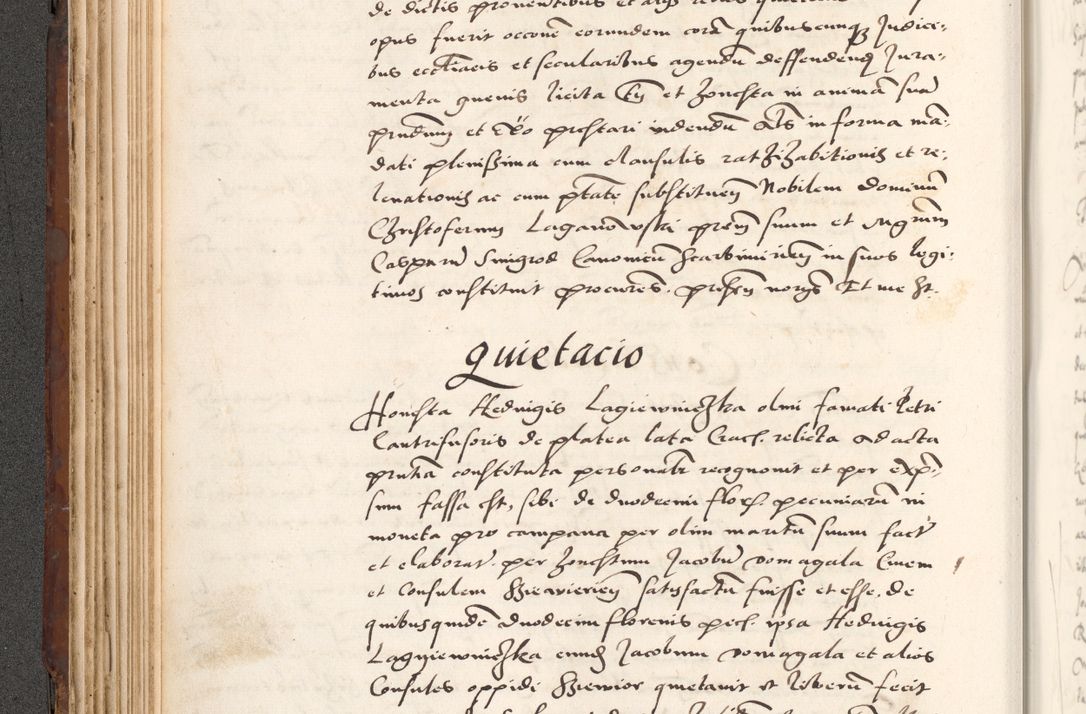 de dictis proventibus et aliis rebus
opus fuerit occone eorundem cora quibuscunq Judice,
bus eccliaeis et secularibus agendu deffendendq Jura,
menta quevis licita et honesta in animam sua
pntdnum et prestari videndu Als in forma man,
dati plenissima cum clausulis ratihabitionis et re,
levationis ac cum ptate substituen Nobilem dominum
Christoferum Laganowski prem suum et
Casparu Smigrod Canonicu Scarbimirien in suos legi,
timos constituit procures. presen nongs Et me
Quietacio
Honesta Hedvigis Lagiewnichka olim famati Petri
Cantrifusoris de platea lata Crach. relicta ad acta
pntia constituta personalr recognovit et per exp,
sum fassa est, sibi de duodecim flor. pecuniaru in
moneta pro campana per olim maritu suum fact
et elaborat. per honestum Jacobu Domagala Civem
et Consulem Bieczien satisfactu fuisse et esse, de
quibus quide duodecim florenis pec. ipsa Hedvigis
Lagyiewnichka eundem Jacobum Domagala et alios
Consules oppidi quietavit et liberu fecit